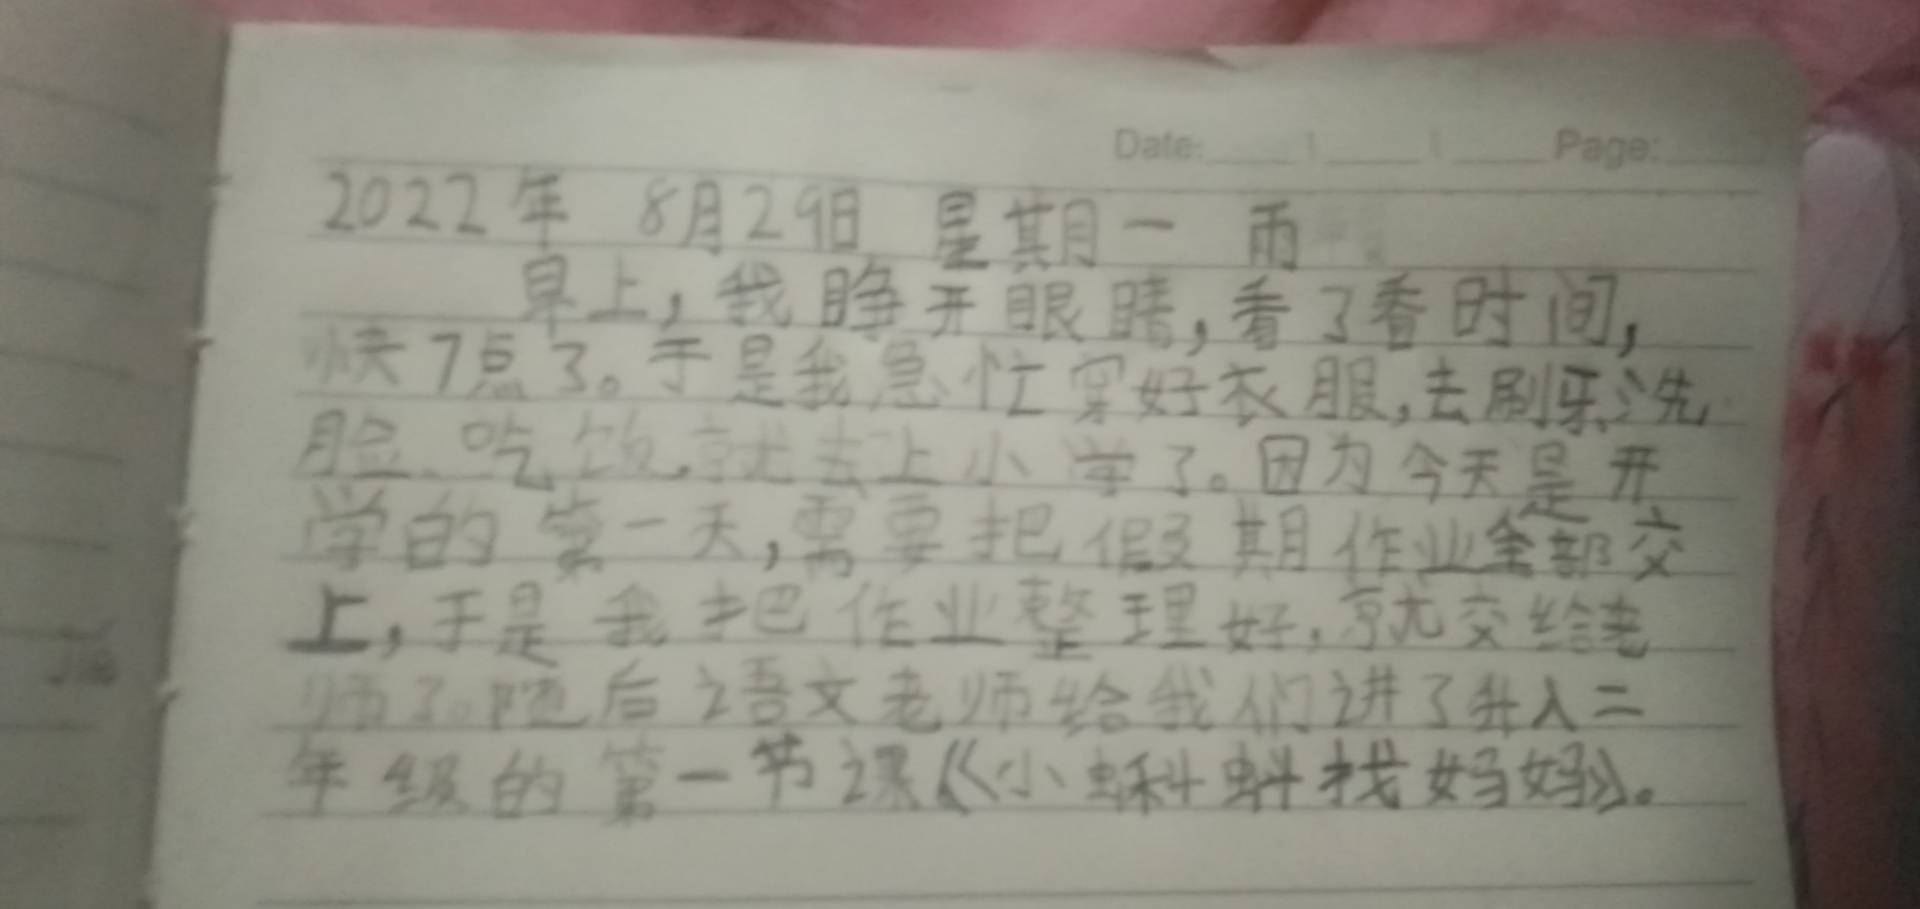 Date: Page:
2022年 8月29日 星期一 雨
早上，我睁开眼睛，看了看时间，
快7点了。于是我急忙穿好衣服，去刷牙洗
脸、吃饭，就去上小学了。因为今天是开
学的第一天，需要把假期作业全部交
上，于是我把作业整理好，就交给老
师了。随后语文老师给我们讲了升入二
年级的第一节课《小蝌蚪找妈妈》。